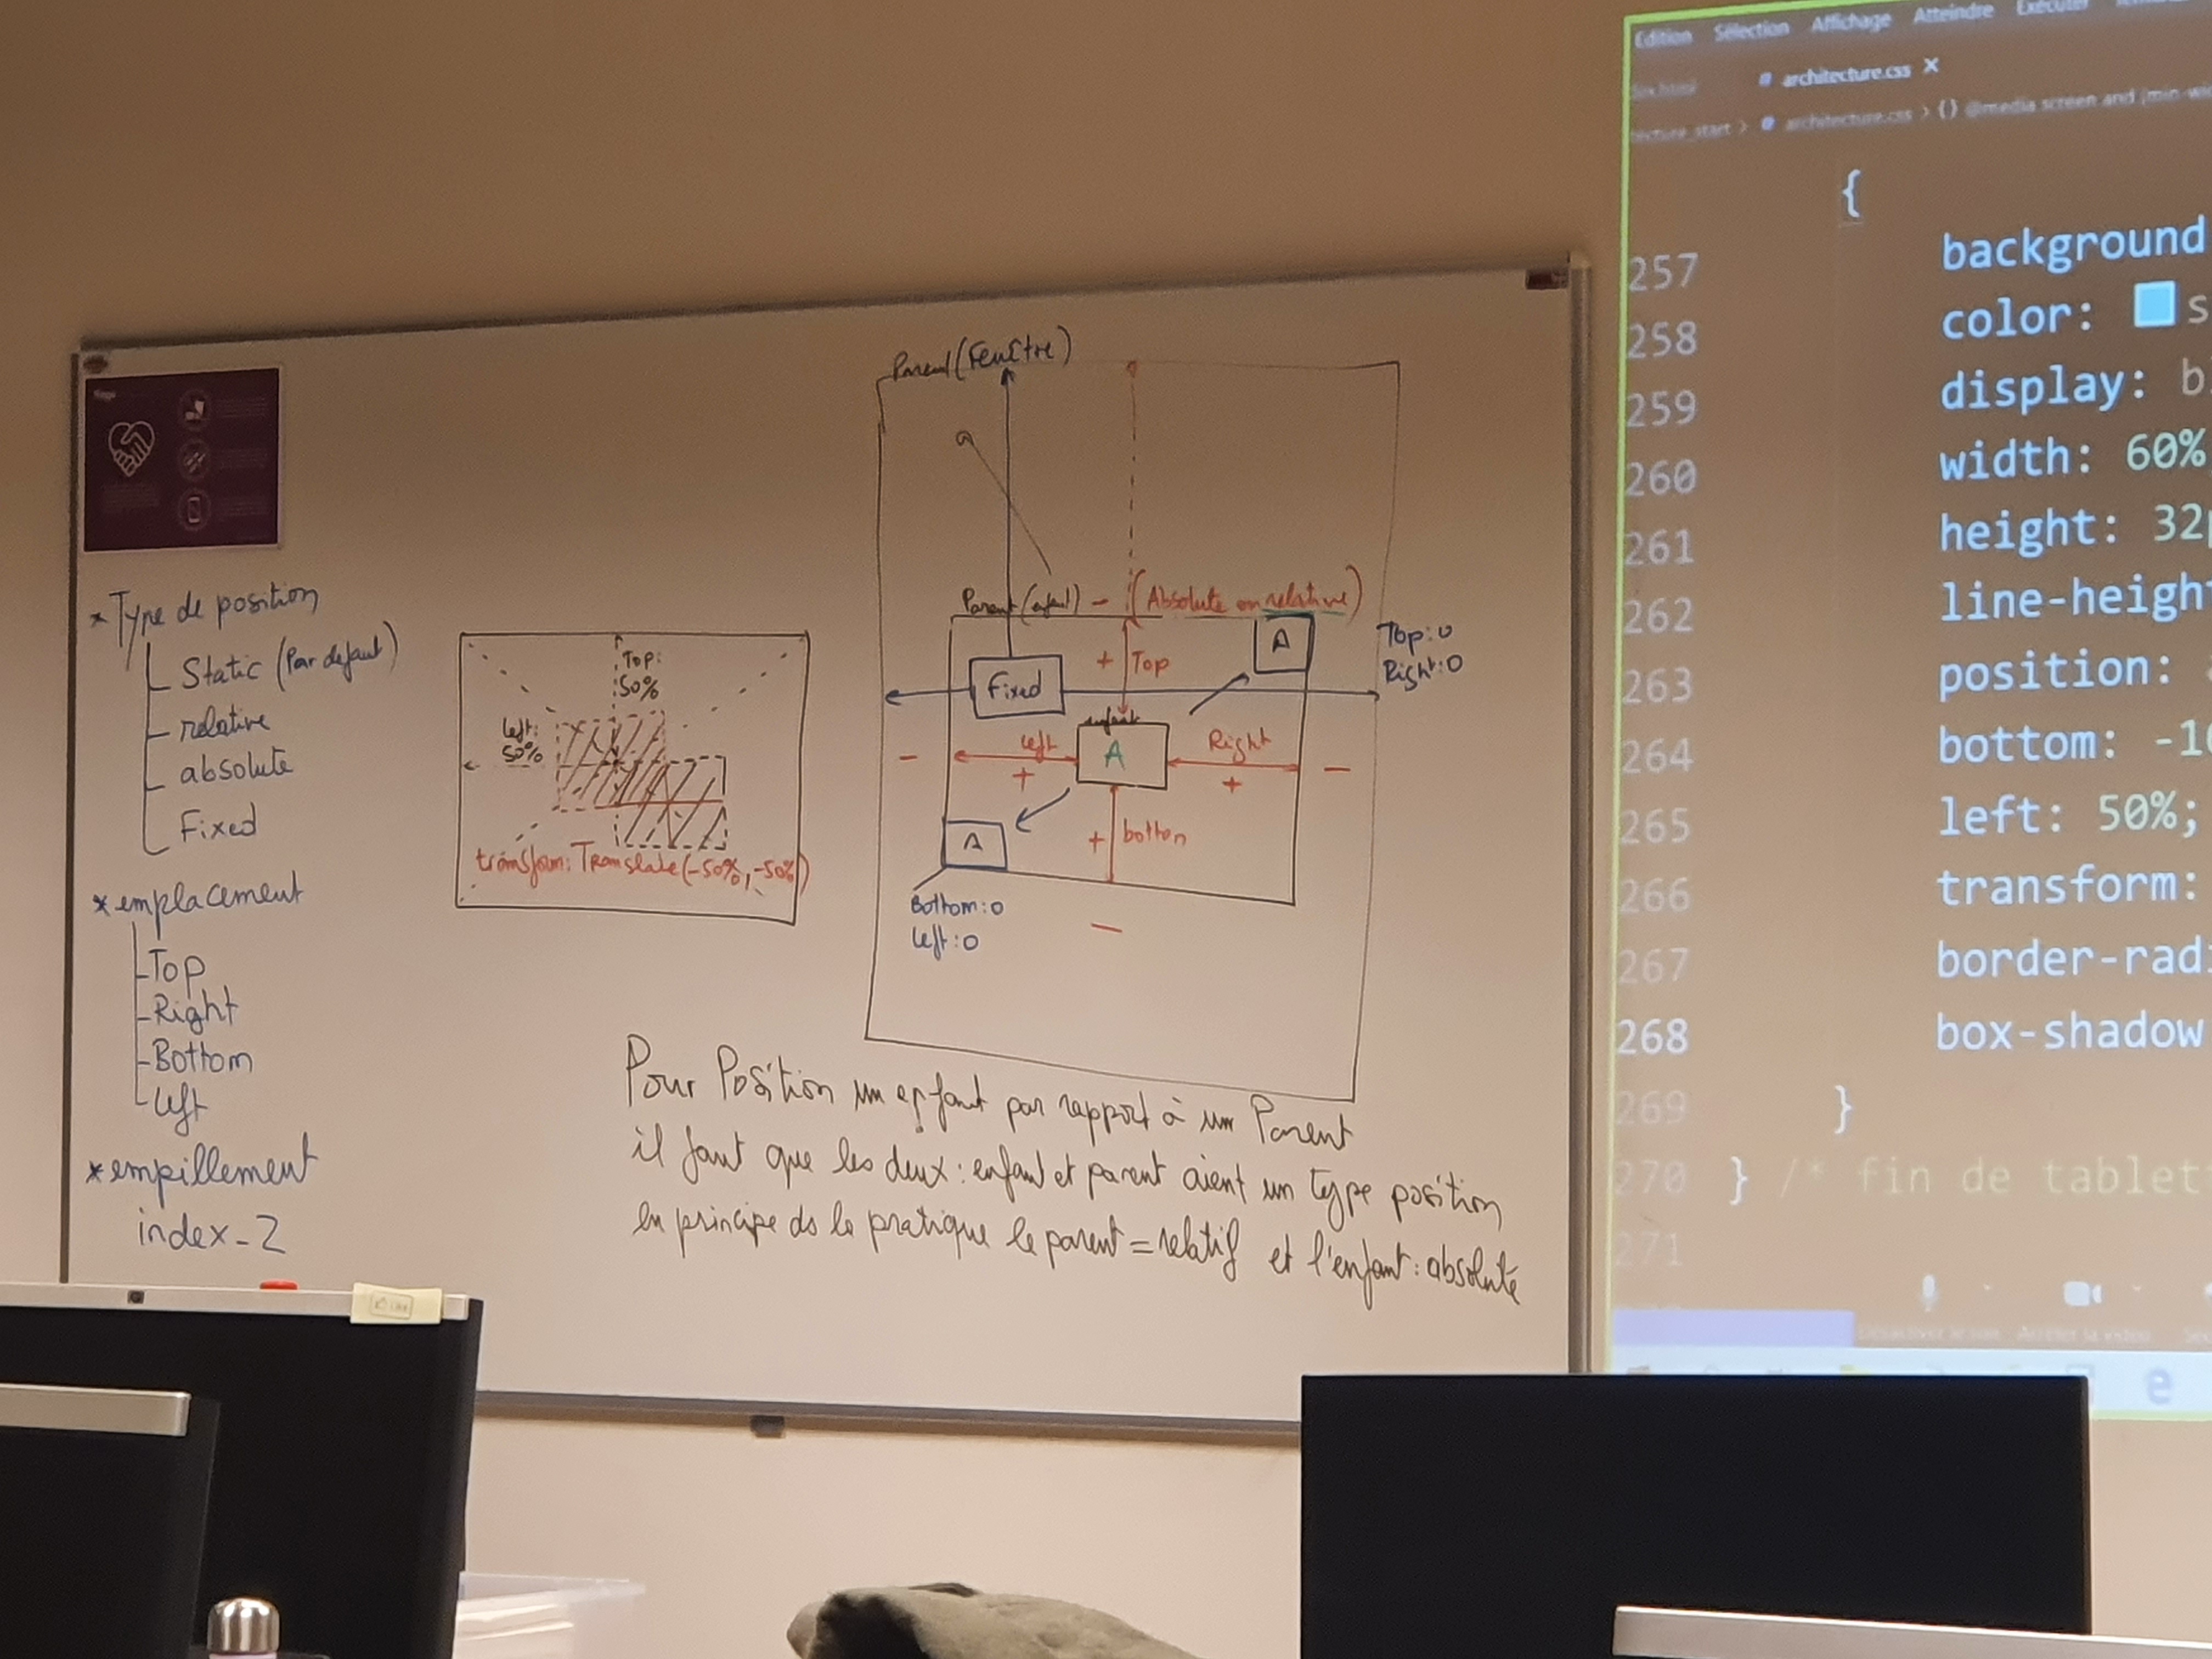 * Type de position
Static (Par defaut)
relative
absolute
Fixed
* emplacement
Top
Right
Bottom
Left
* empillement
index-2
Top:
50%
Left:
50%
transform: Translate(-50%, -50%)
Parent (Fenêtre)
Parent (enfant) - (Absolute ou relative)
A
Top:0
Right:0
+ Top
Fixed
enfant
A
- Left +
Right + -
A
+ bottom
Bottom:0
Left:0
-
Pour Position un enfant par rapport à un Parent
il faut que les deux: enfant et parent aient un type position
en principe ds la pratique le parent = relatif et l'enfant: absolute
Edition Sélection Affichage Atteindre Exécuter
architecture.css ×
architecture.css > {} @media screen and (min-wi
{
257 background
258 color: s
259 display: b
260 width: 60%
261 height: 32p
262 line-heigh
263 position:
264 bottom: -1
265 left: 50%;
266 transform:
267 border-rad
268 box-shadow
269 }
270 } /* fin de tablet
271